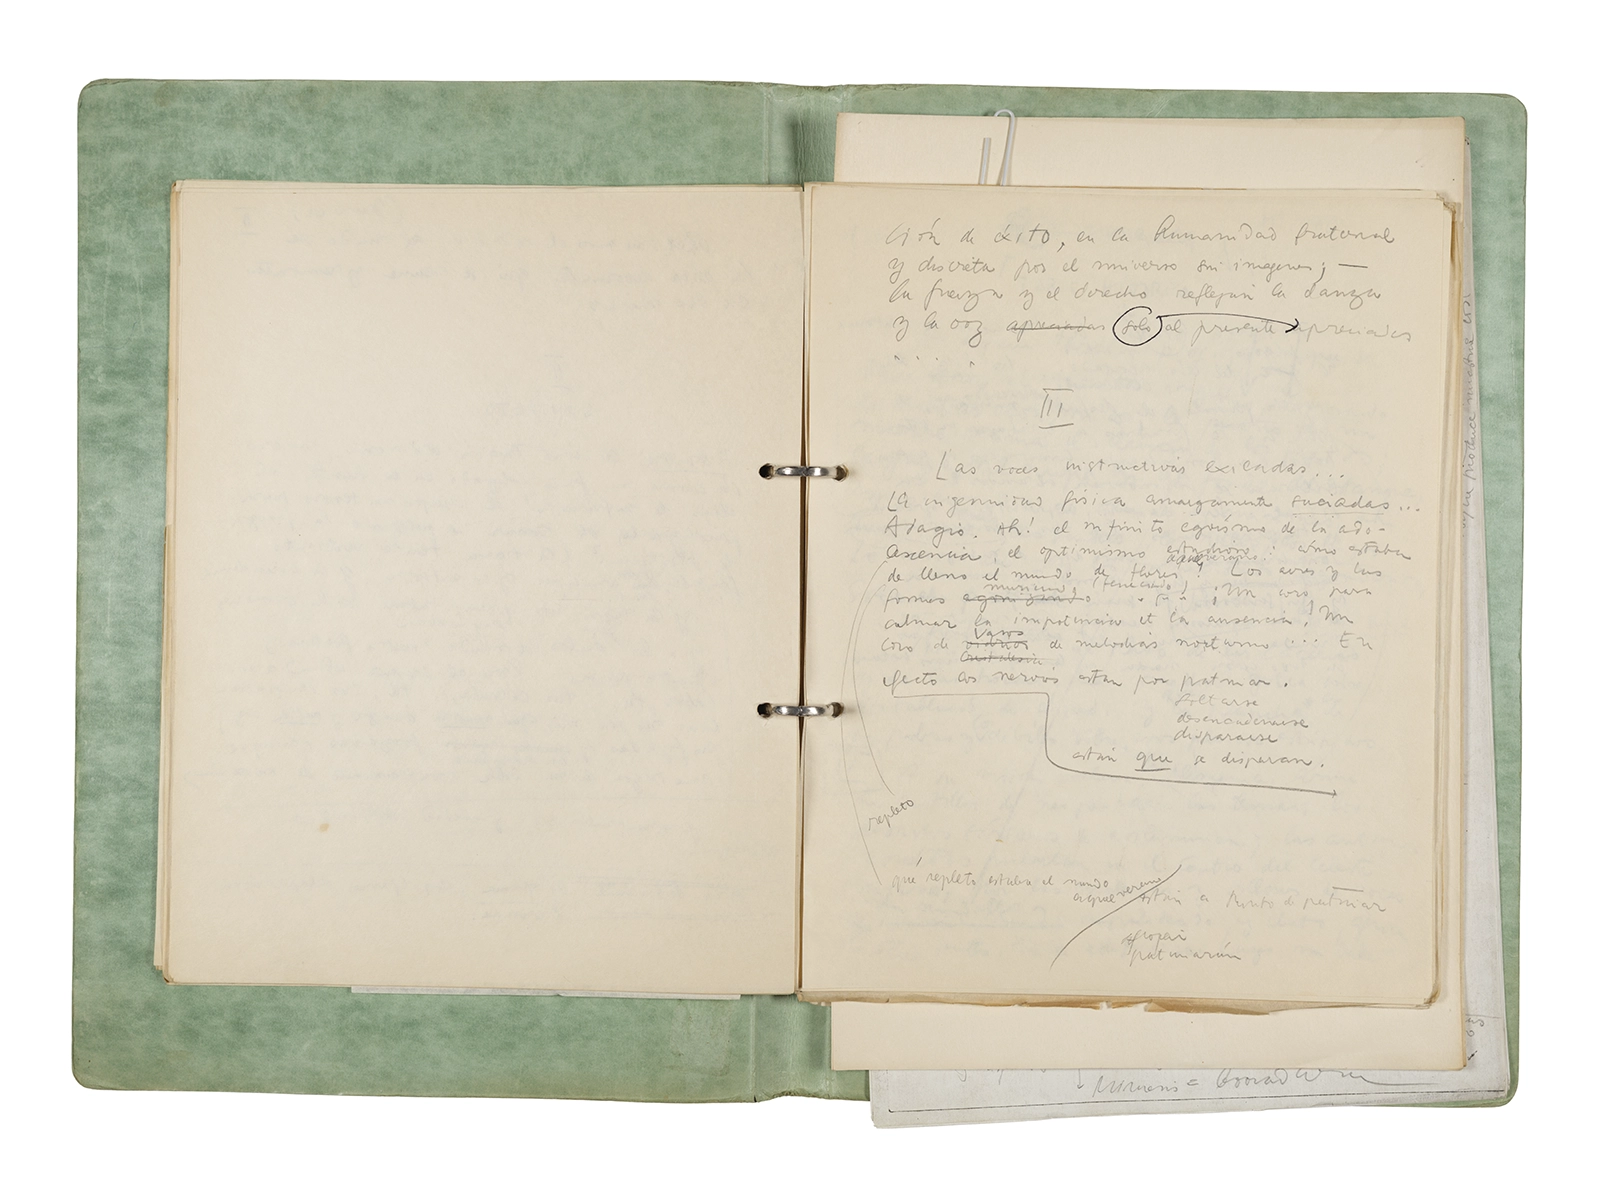 ción de éxito, en la humanidad fraternal
y discreta por el universo sin imagenes; —
la fuerza y el derecho reflejan la danza
y la voz apreciadas solo al presente apreciadas
III
Las voces instructivas exiladas...
La ingenuidad física amargamente saciadas...
Adagio. Ah! el infinito egoísmo de la ado-
lescencia, el optimismo estudioso: cómo estaba
aquel verano!
de lleno el mundo de flores! Los aires y las
formas agonizando ¡Un coro para
calmar la impotencia et la ausencia! Un
vasos
coro de vidrios de melodías nocturno... En
Cristalería
efecto los nervios están por patinar.
soltarse
desencadenarse
dispararse
están que se disparan.
repleto
qué repleto estaba el mundo
aquel verano
están a punto de patinar
patinarán